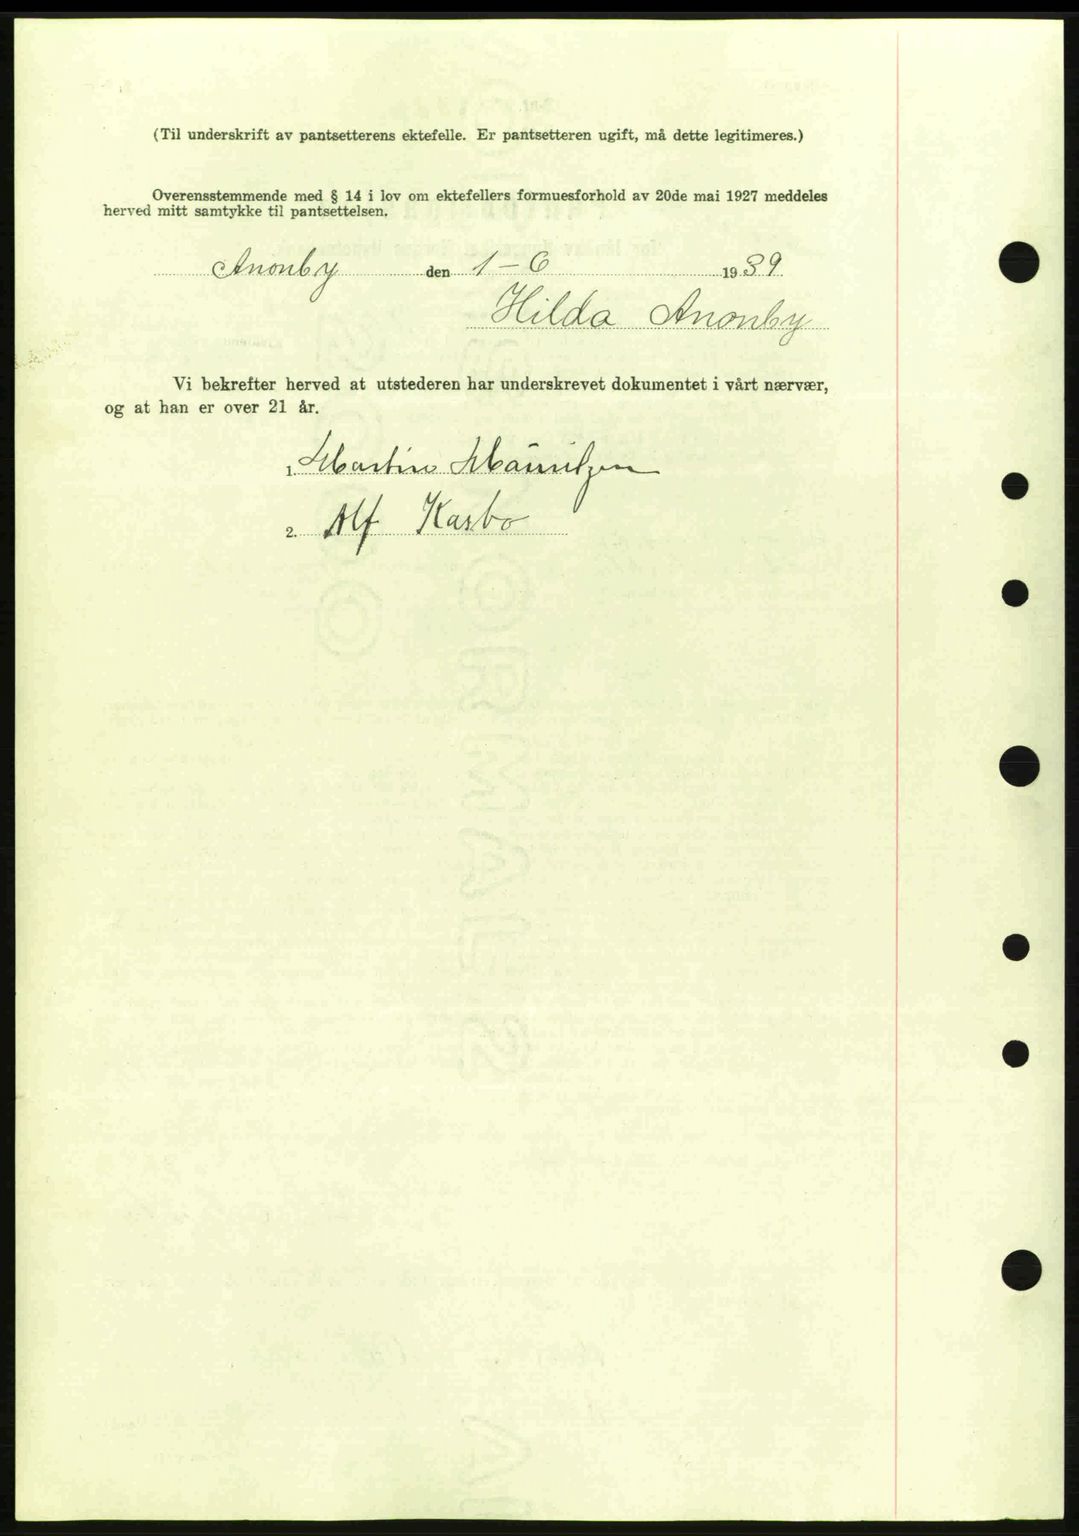 (Til underskrift av pantsetterens ektefelle. Er pantsetteren ugift, må dette legitimeres.)
Overensstemmende med § 14 i lov om ektefellers formuesforhold av 20de mai 1927 meddeles
herved mitt samtykke til pantsettelsen.
Anonby den 1-6 1939
Hilda Anonby
Vi bekrefter herved at utstederen har underskrevet dokumentet i vårt nærvær,
og at han er over 21 år.
1. Martin Mauritzen
2. Alf Kasbo
NORMAL 2